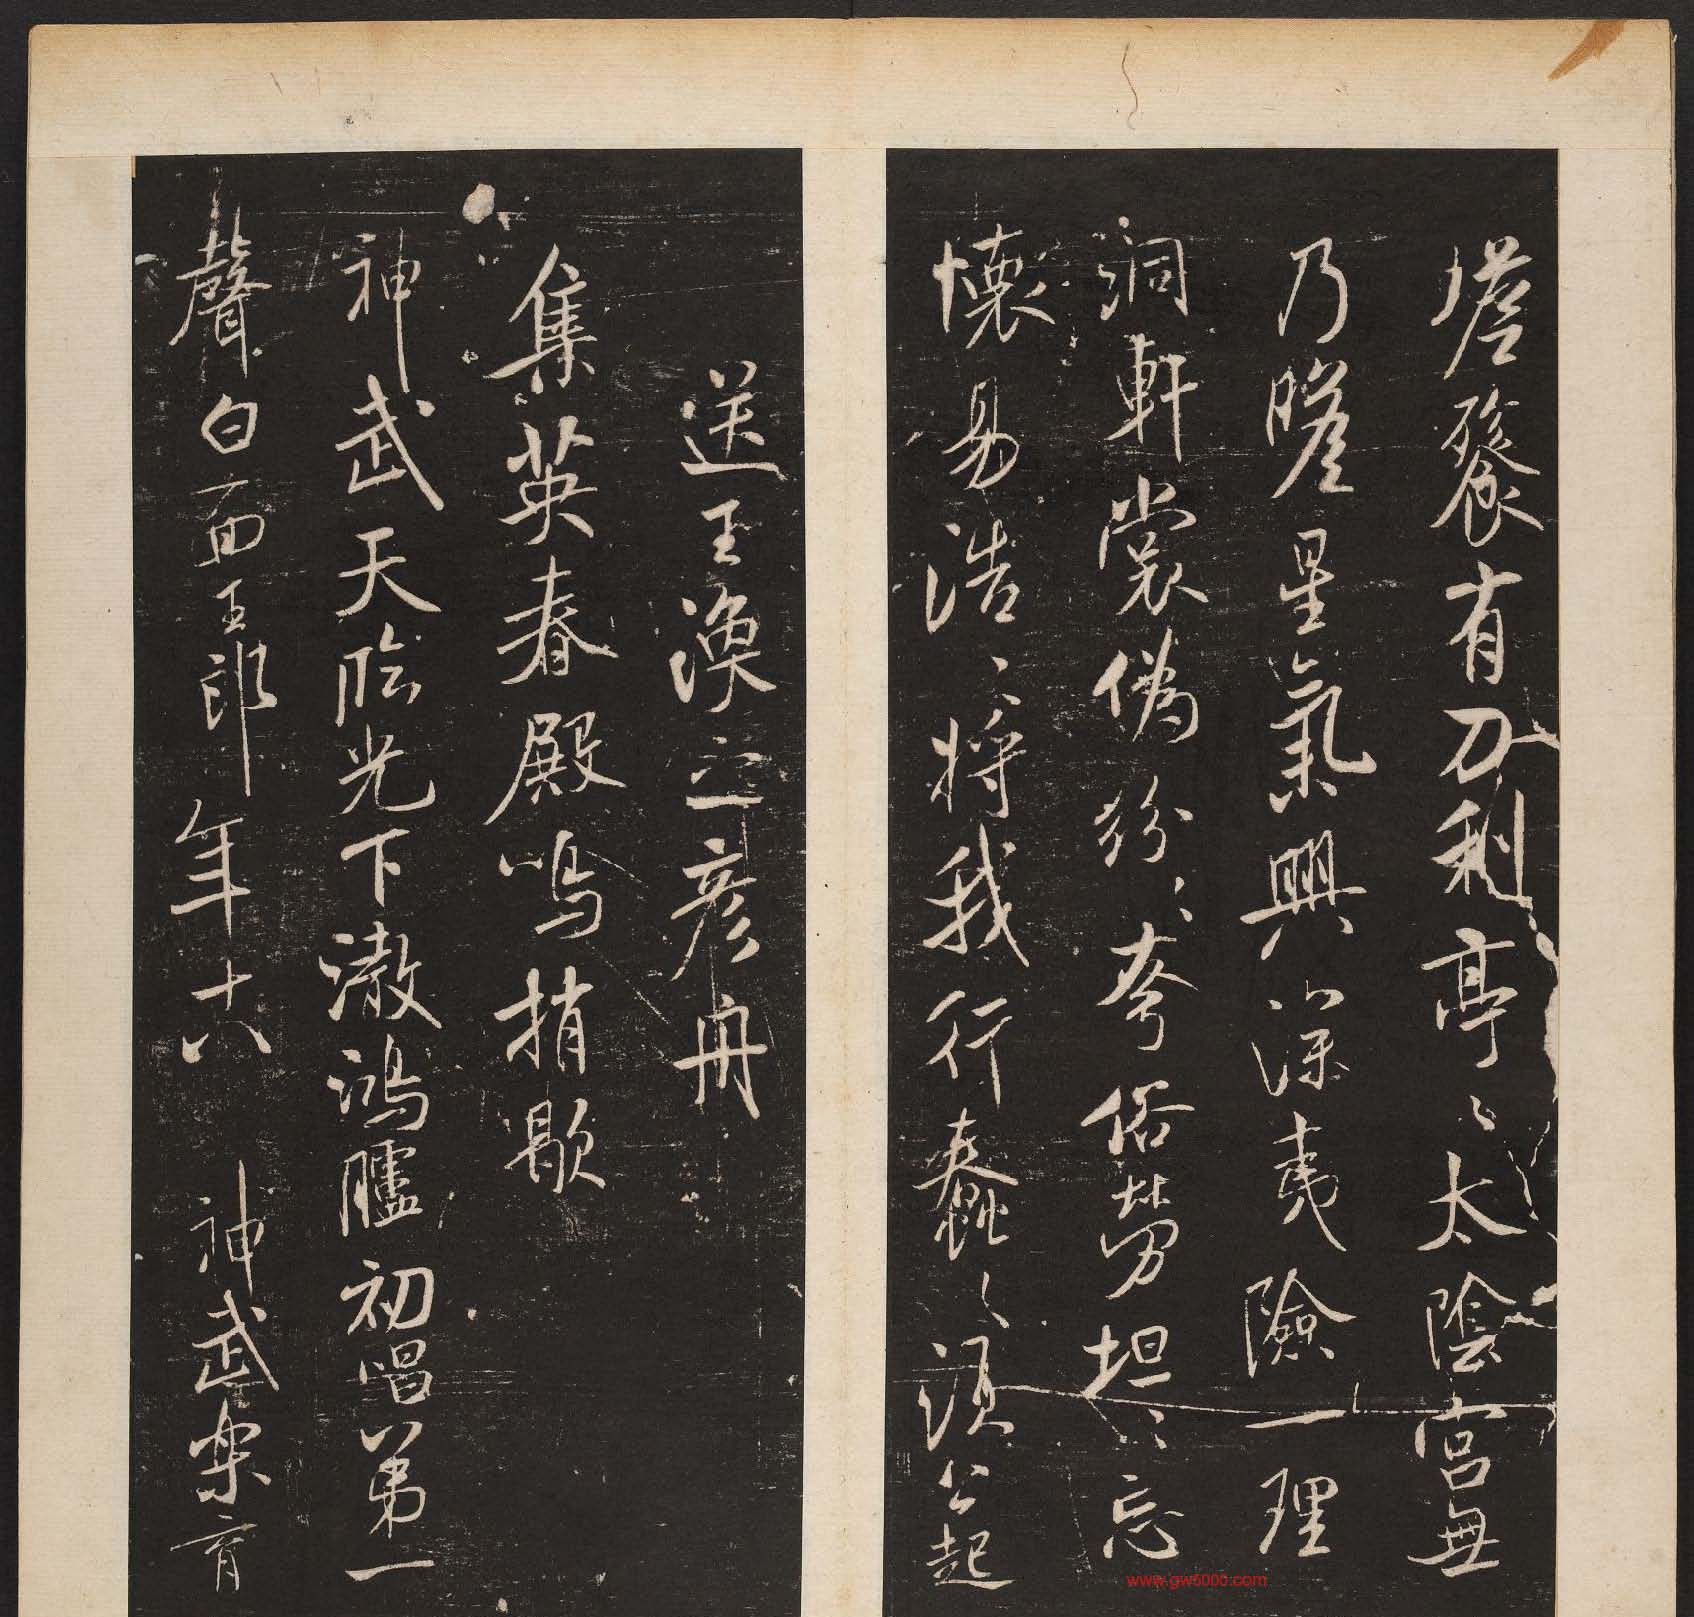 蟾餐有刀利亭〻太陰宮無
乃瞻星氣興深夷險一理
洞軒裳偽紛〻夸俗勞坦〻忘
懷易浩〻將我行蠢〻須公起
送王渙之彥舟
集英春殿鳴捎歇
神武天臨光下澈鴻臚初唱第一
聲白面王郎年十八 神武樂育
www.gw5000.com